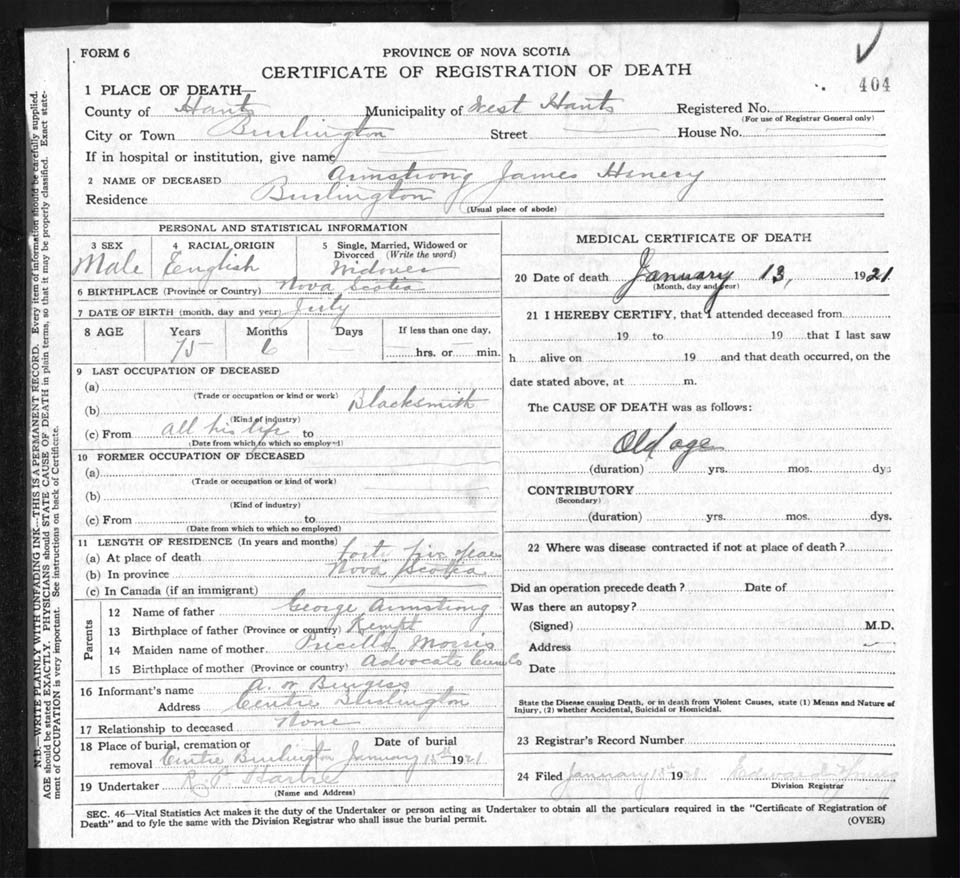 FORM 6
PROVINCE OF NOVA SCOTIA
CERTIFICATE OF REGISTRATION OF DEATH
404
1 PLACE OF DEATH—
County of Hants Municipality of West Hants Registered No.
(For use of Registrar General only)
City or Town Burlington Street House No.
If in hospital or institution, give name
2 NAME OF DECEASED Armstrong James Henery
Residence Burlington
(Usual place of abode)
PERSONAL AND STATISTICAL INFORMATION
3 SEX 4 RACIAL ORIGIN 5 Single, Married, Widowed or
Divorced (Write the word)
Male English Widower
6 BIRTHPLACE (Province or Country) Nova Scotia
7 DATE OF BIRTH (month, day and year) July
8 AGE Years Months Days If less than one day,
75 6 hrs. or min.
9 LAST OCCUPATION OF DECEASED
(a)
(Trade or occupation or kind or work)
(b) Blacksmith
(Kind of industry)
(c) From all his life to
(Date from which to which so employed)
10 FORMER OCCUPATION OF DECEASED
(a)
(Trade or occupation or kind of work)
(b)
(Kind of industry)
(c) From to
(Date from which to which so employed)
11 LENGTH OF RESIDENCE (In years and months)
(a) At place of death forty five years
(b) In province Nova Scotia
(c) In Canada (if an immigrant)
Parents
12 Name of father George Armstrong
13 Birthplace of father (Province or country) Kempt
14 Maiden name of mother Pricella Morris
15 Birthplace of mother (Province or country) Advocate Cum Co
16 Informant's name A. W Burgess
Address Centre Burlington
17 Relationship to deceased None
18 Place of burial, cremation or Date of burial
removal Centre Burlington January 15th 1921
19 Undertaker R. P.
(Name and Address)
MEDICAL CERTIFICATE OF DEATH
20 Date of death January 13, 1921
(Month, day and year)
21 I HEREBY CERTIFY, that I attended deceased from
19 to 19 that I last saw
h alive on 19 and that death occurred, on the
date stated above, at m.
The CAUSE OF DEATH was as follows:
Old age
(duration) yrs. mos. dys
CONTRIBUTORY
(Secondary)
(duration) yrs. mos. dys.
22 Where was disease contracted if not at place of death?
Did an operation precede death? Date of
Was there an autopsy?
(Signed) M.D.
Address
Date
State the Disease causing Death, or in death from Violent Causes, state (1) Means and Nature of
Injury, (2) whether Accidental, Suicidal or Homicidal.
23 Registrar's Record Number
24 Filed January 15th 1921 Edward Young
Division Registrar
SEC. 46—Vital Statistics Act makes it the duty of the Undertaker or person acting as Undertaker to obtain all the particulars required in the "Certificate of Registration of
Death" and to fyle the same with the Division Registrar who shall issue the burial permit.
(OVER)
N.B.—WRITE PLAINLY WITH UNFADING INK—THIS IS A PERMANENT RECORD. Every item of information should be carefully supplied.
AGE should be stated EXACTLY. PHYSICIANS should STATE CAUSE OF DEATH in plain terms, so that it may be properly classified. Exact state-
ment of OCCUPATION is very important. See instructions on back of Certificate.